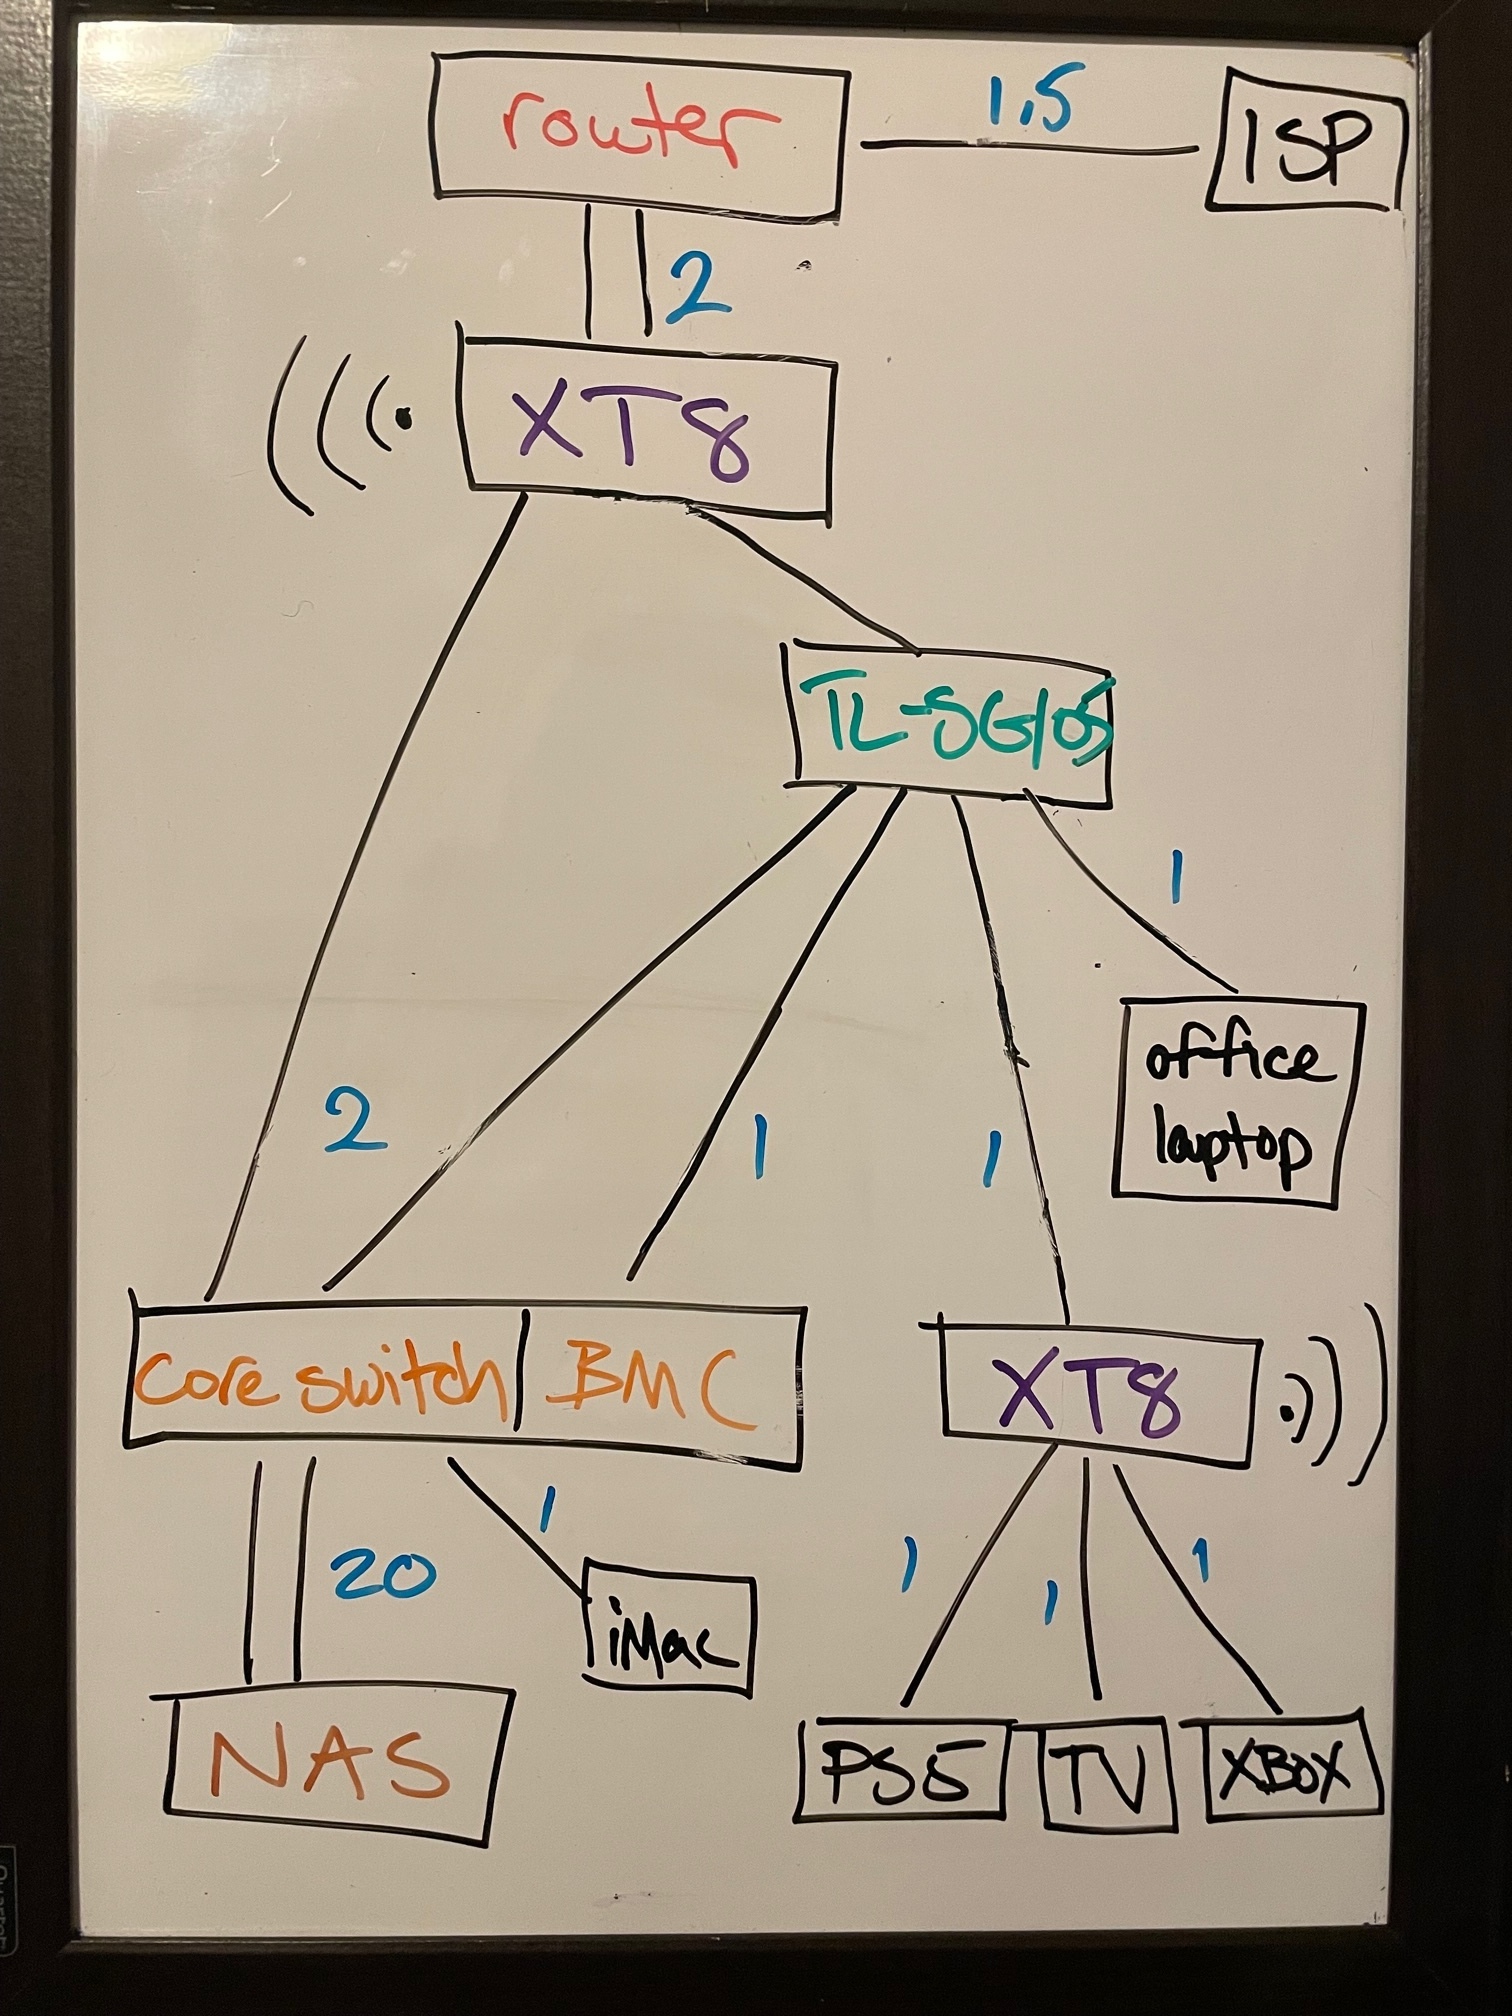 router
1.5
ISP
2
XT8
TL-SG105
1
office
laptop
2
1
1
core switch
BMC
XT8
20
1
iMac
1
1
1
NAS
PS5
TV
XBOX